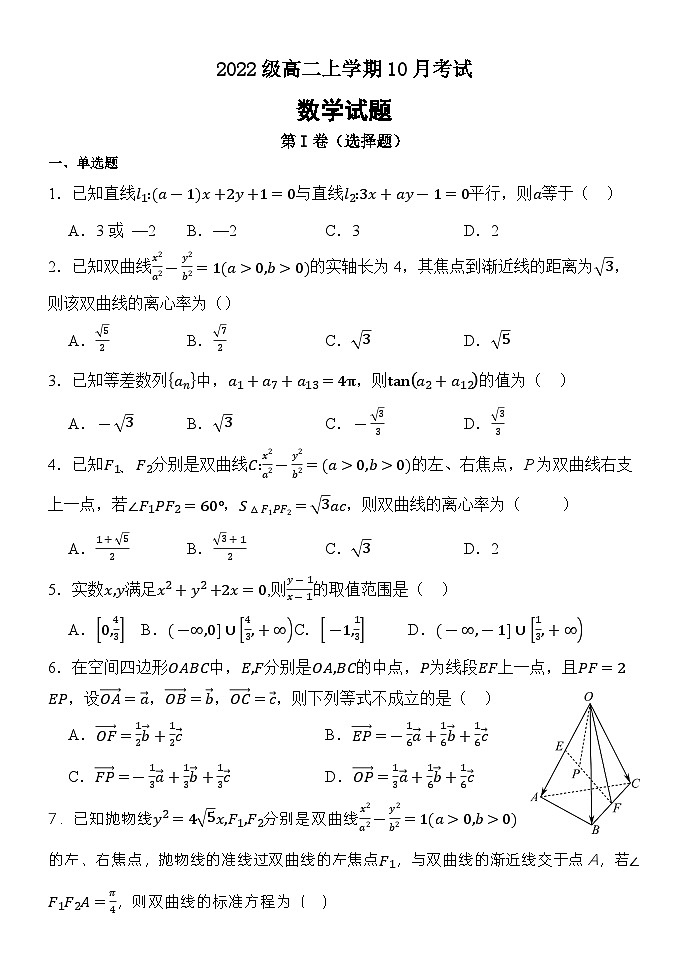 2022级高二上学期10月考试
数学试题
第I卷（选择题）
一、单选题
1．已知直线l₁:(a−1)x+2y+1=0与直线l₂:3x+ay−1=0平行，则a等于（ ）
A．3或 —2 B．—2 C．3 D．2
2．已知双曲线x²/a²−y²/b²=1(a>0,b>0)的实轴长为4，其焦点到渐近线的距离为√3，
则该双曲线的离心率为()
A．√5/2 B．√7/2 C．√3 D．√5
3．已知等差数列{aₙ}中，a₁+a₇+a₁₃=4π，则tan(a₂+a₁₂)的值为（ ）
A．−√3 B．√3 C．−√3/3 D．√3/3
4．已知F₁、F₂分别是双曲线C:x²/a²−y²/b²=(a>0,b>0)的左、右焦点，P为双曲线右支
上一点，若∠F₁PF₂=60°，S△F₁PF₂=√3ac，则双曲线的离心率为（ ）
A．(1+√5)/2 B．(√3+1)/2 C．√3 D．2
5．实数x,y满足x²+y²+2x=0,则(y−1)/(x−1)的取值范围是（ ）
A．[0,4/3] B．(−∞,0]∪[4/3,+∞) C．[−1,1/3] D．(−∞,−1]∪[1/3,+∞)
6．在空间四边形OABC中，E,F分别是OA,BC的中点，P为线段EF上一点，且PF=2
EP，设OA⃗=a⃗，OB⃗=b⃗，OC⃗=c⃗，则下列等式不成立的是（ ）
A．OF⃗=1/2b⃗+1/2c⃗ B．EP⃗=−1/6a⃗+1/6b⃗+1/6c⃗
C．FP⃗=−1/3a⃗+1/3b⃗+1/3c⃗ D．OP⃗=1/3a⃗+1/6b⃗+1/6c⃗
O
E
P
A
C
F
B
7．已知抛物线y²=4√5x,F₁,F₂分别是双曲线x²/a²−y²/b²=1(a>0,b>0)
的左、右焦点，抛物线的准线过双曲线的左焦点F₁，与双曲线的渐近线交于点A，若∠
F₁F₂A=π/4，则双曲线的标准方程为（ ）